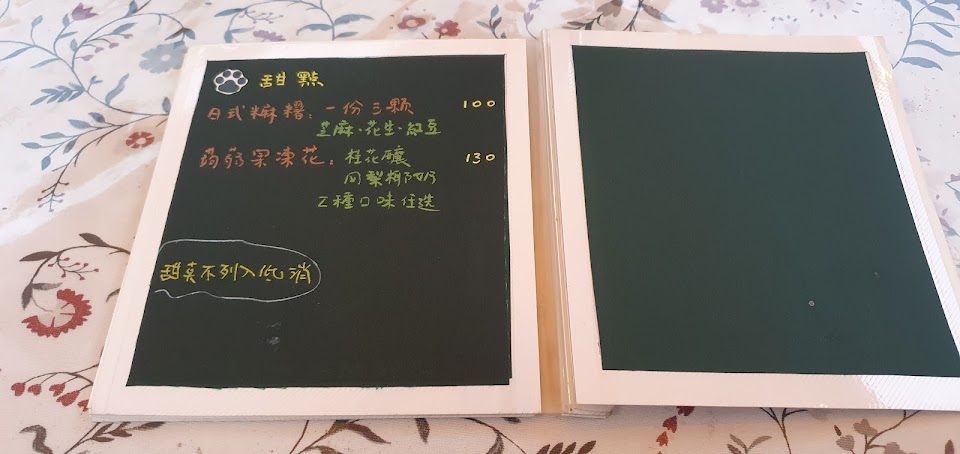 甜點
日式麻糬：一份3顆 100
芝麻·花生·紅豆
蒟蒻果凍花：桂花釀 130
2種口味任選
甜點不列入低消